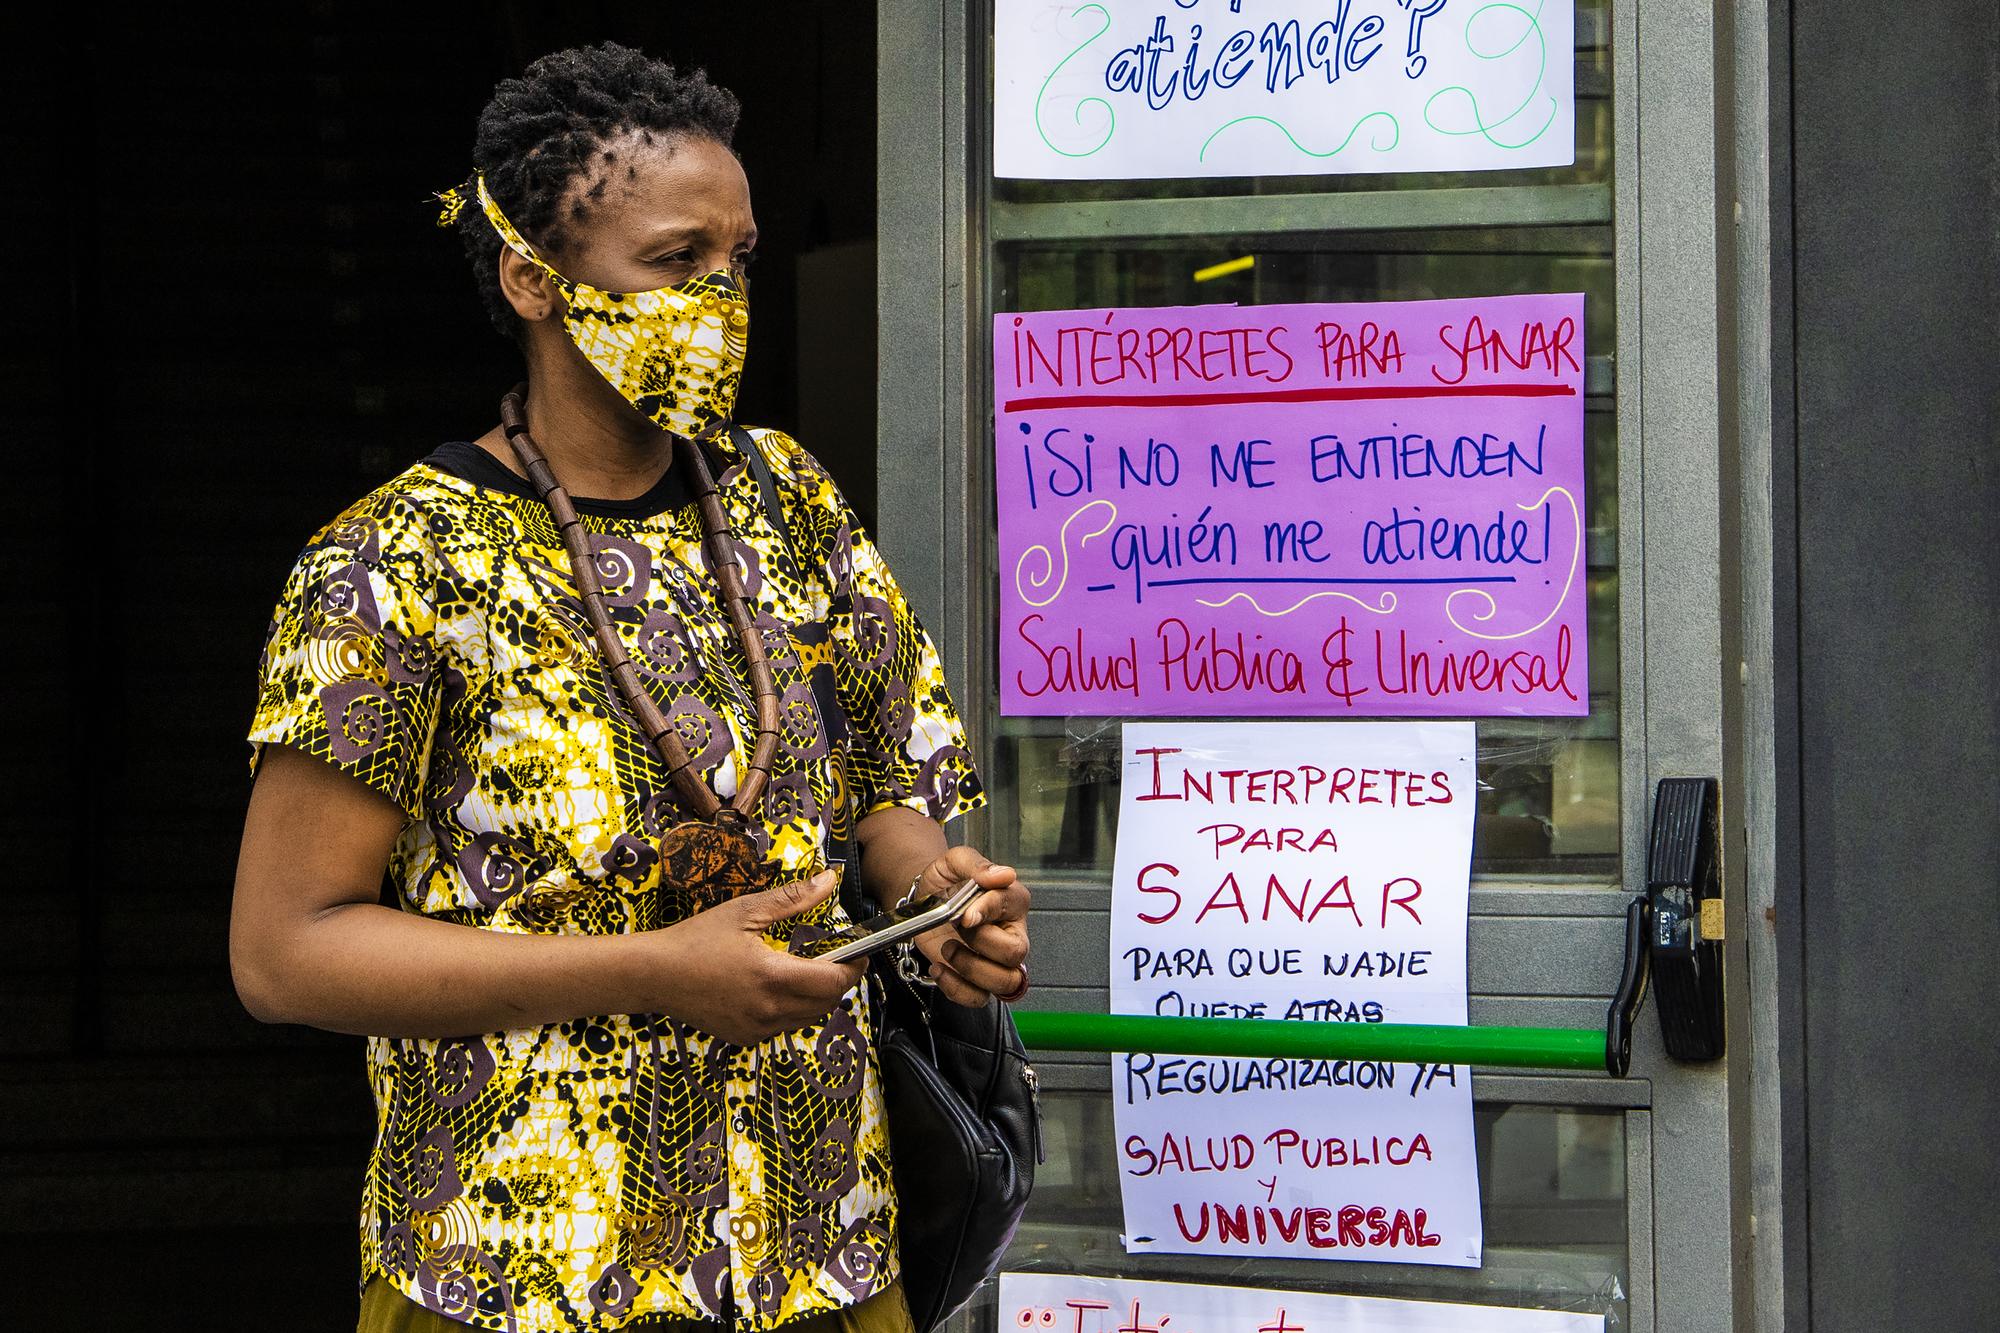 atiende?
INTÉRPRETES PARA SANAR
¡Si NO ME ENTIENDEN
quién me atiende!
Salud Pública & Universal
INTERPRETES
PARA
SANAR
PARA QUE NADIE
QUEDE ATRAS
REGULARIZACION YA
SALUD PUBLICA
Y
UNIVERSAL